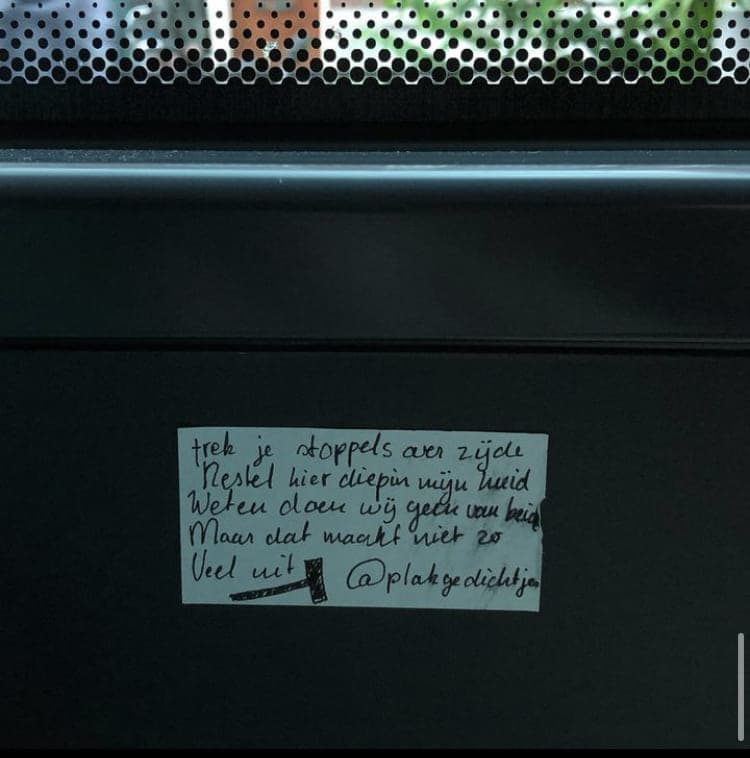 trek je stoppels over zijde
Nestel hier diep in mijn huid
Weten doen wij geen van beid
Maar dat maakt niet zo
Veel uit
@plakgedichtjen